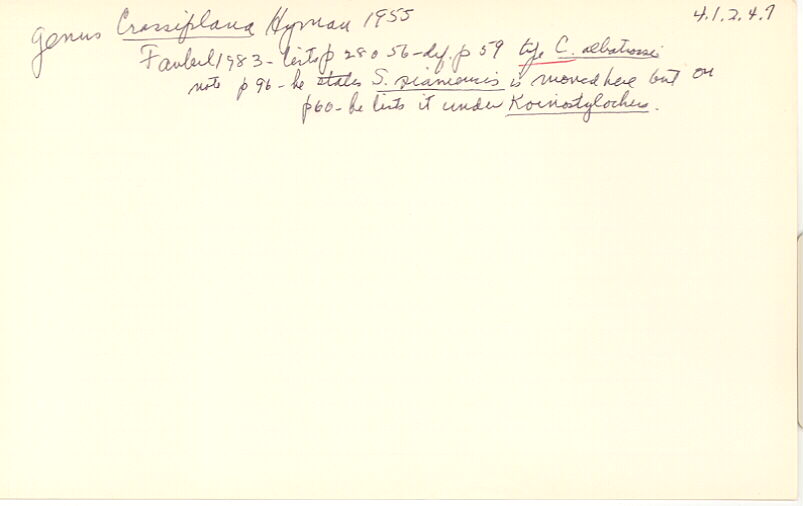 4.1.2.4.7
Genus Crassiplana Hyman 1955
Faubel 1983 - lists p 28 56 - def. p 59 type C. albatrossi
note p 96 - he states S. siamensis is moved here but on
p60 - he lists it under Koinostylochus.